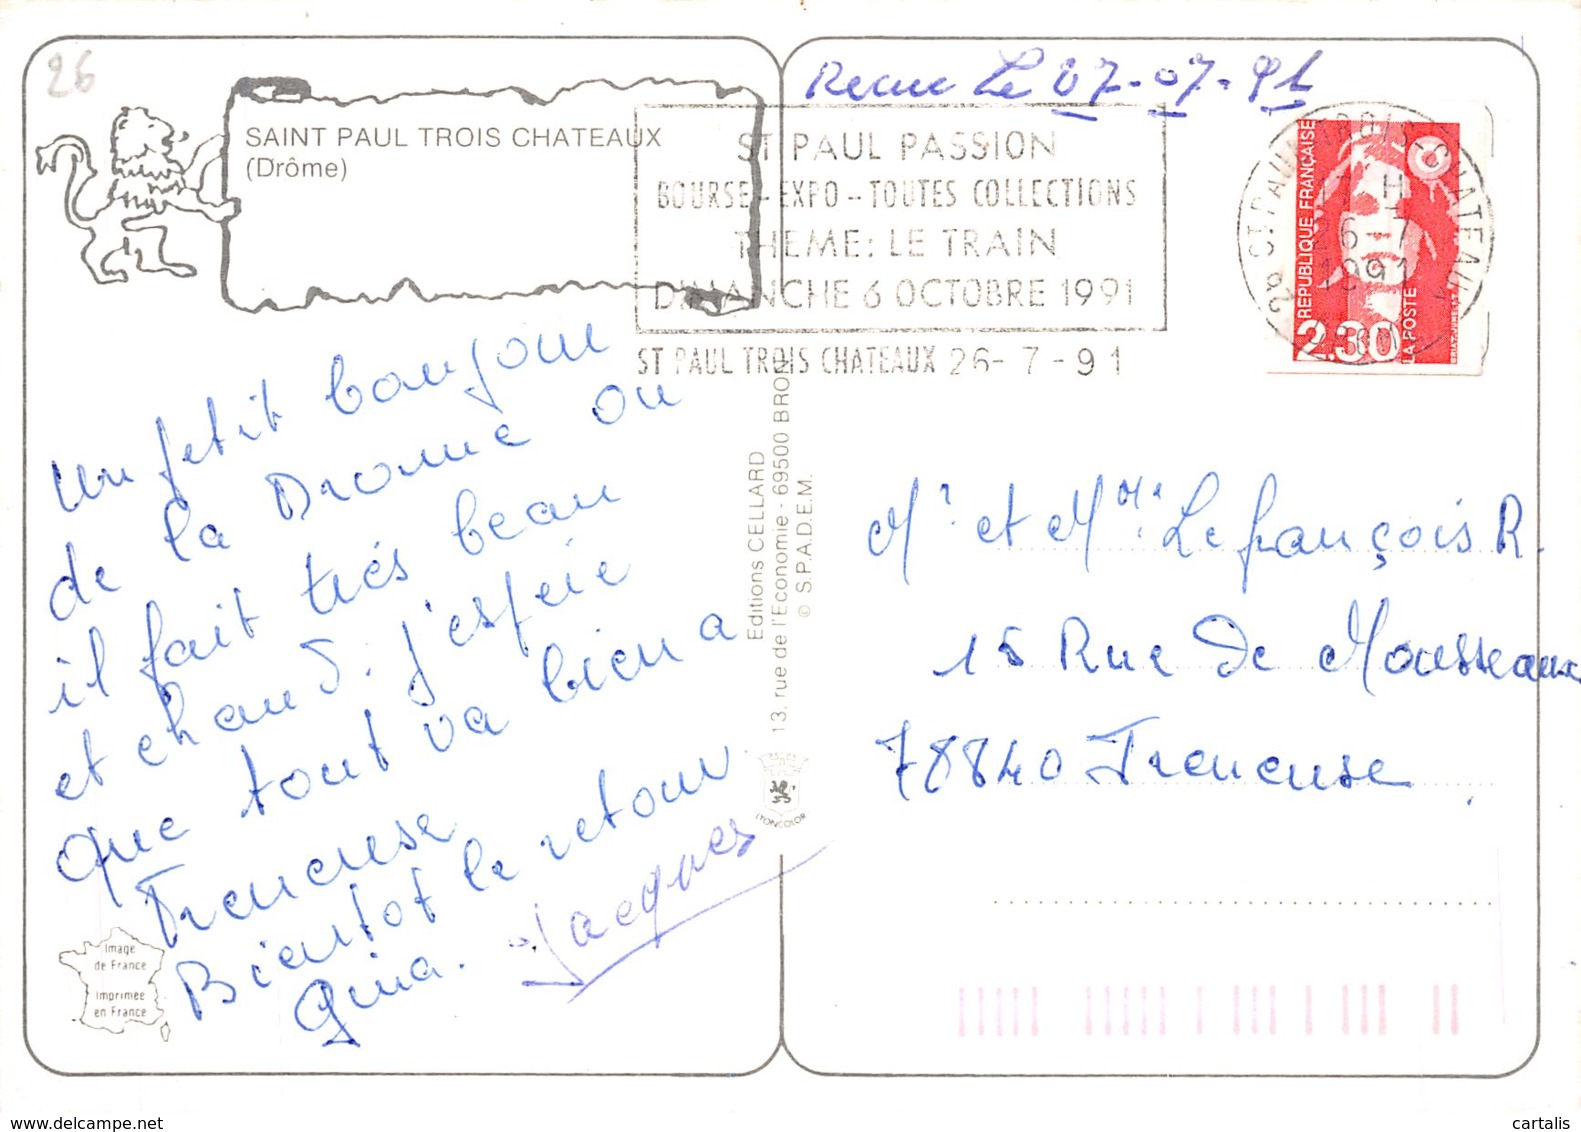 26
Recue Le 27-07-91
SAINT PAUL TROIS CHATEAUX
(Drôme)
ST PAUL PASSION
BOURSE - EXPO - TOUTES COLLECTIONS
THEME: LE TRAIN
DIMANCHE 6 OCTOBRE 1991
ST PAUL TROIS CHATEAUX 26-7-91
26-7
1991
REPUBLIQUE FRANÇAISE
2,30
LA POSTE
Un petit bonjour
de la Drome ou
il fait trés beau
et chaud. j'espeie
que tout va bien a
Freneuse
Bientot le retour
Gina.
Jacques
Editions CELLARD
13, rue de l'Economie - 69500 BRON
© S.P.A.D.E.M.
LYONCOLOR
Mr et Mme Lefrançois R.
15 Rue de Mousseaux
78840 Freneuse.
Image
de France
imprimée
en France
www.delcampe.net
cartalis